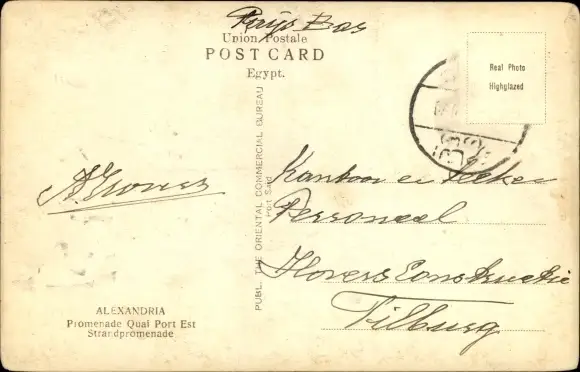 Pays Bas
Union Postale
POST CARD
Egypt.
Real Photo
Highglazed
PUBL. THE ORIENTAL COMMERCIAL BUREAU
Port Said
Kantoor en
Personeel
Constructie
Tilburg
ALEXANDRIA
Promenade Quai Port Est
Strandpromenade